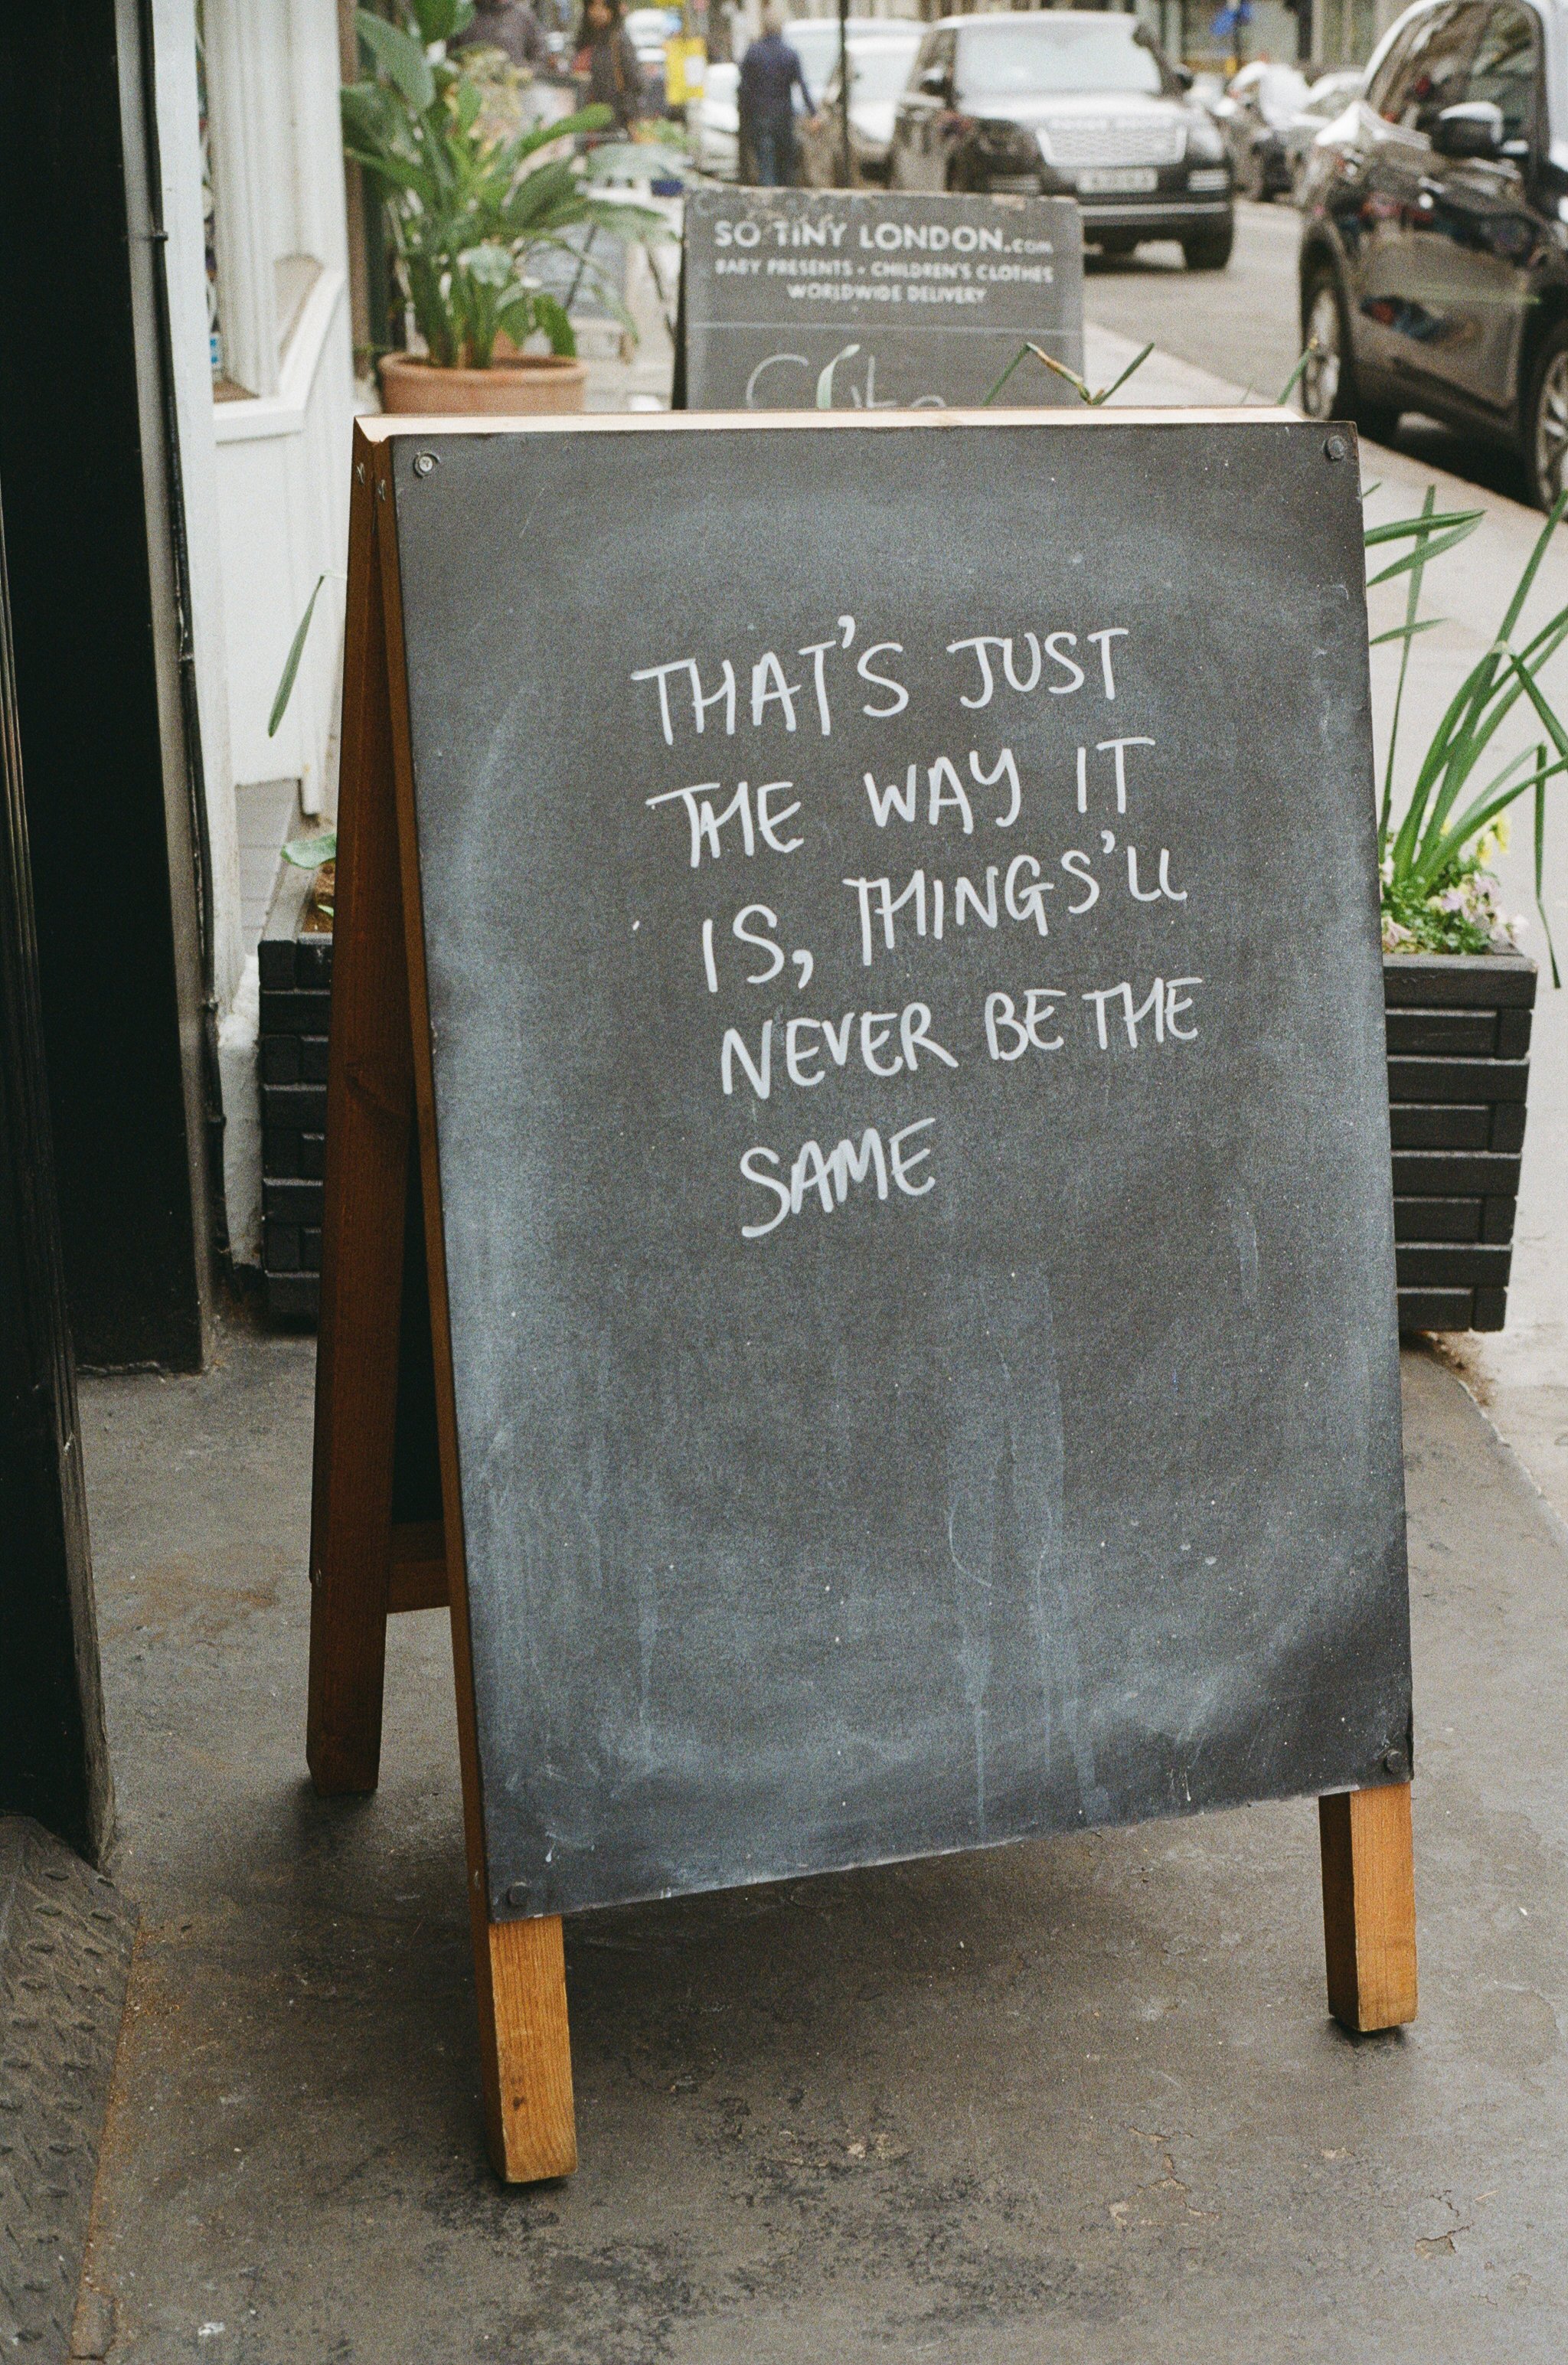 SO TINY LONDON.COM
BABY PRESENTS • CHILDREN'S CLOTHES
WORLDWIDE DELIVERY
THAT'S JUST
THE WAY IT
IS, THINGS'LL
NEVER BE THE
SAME